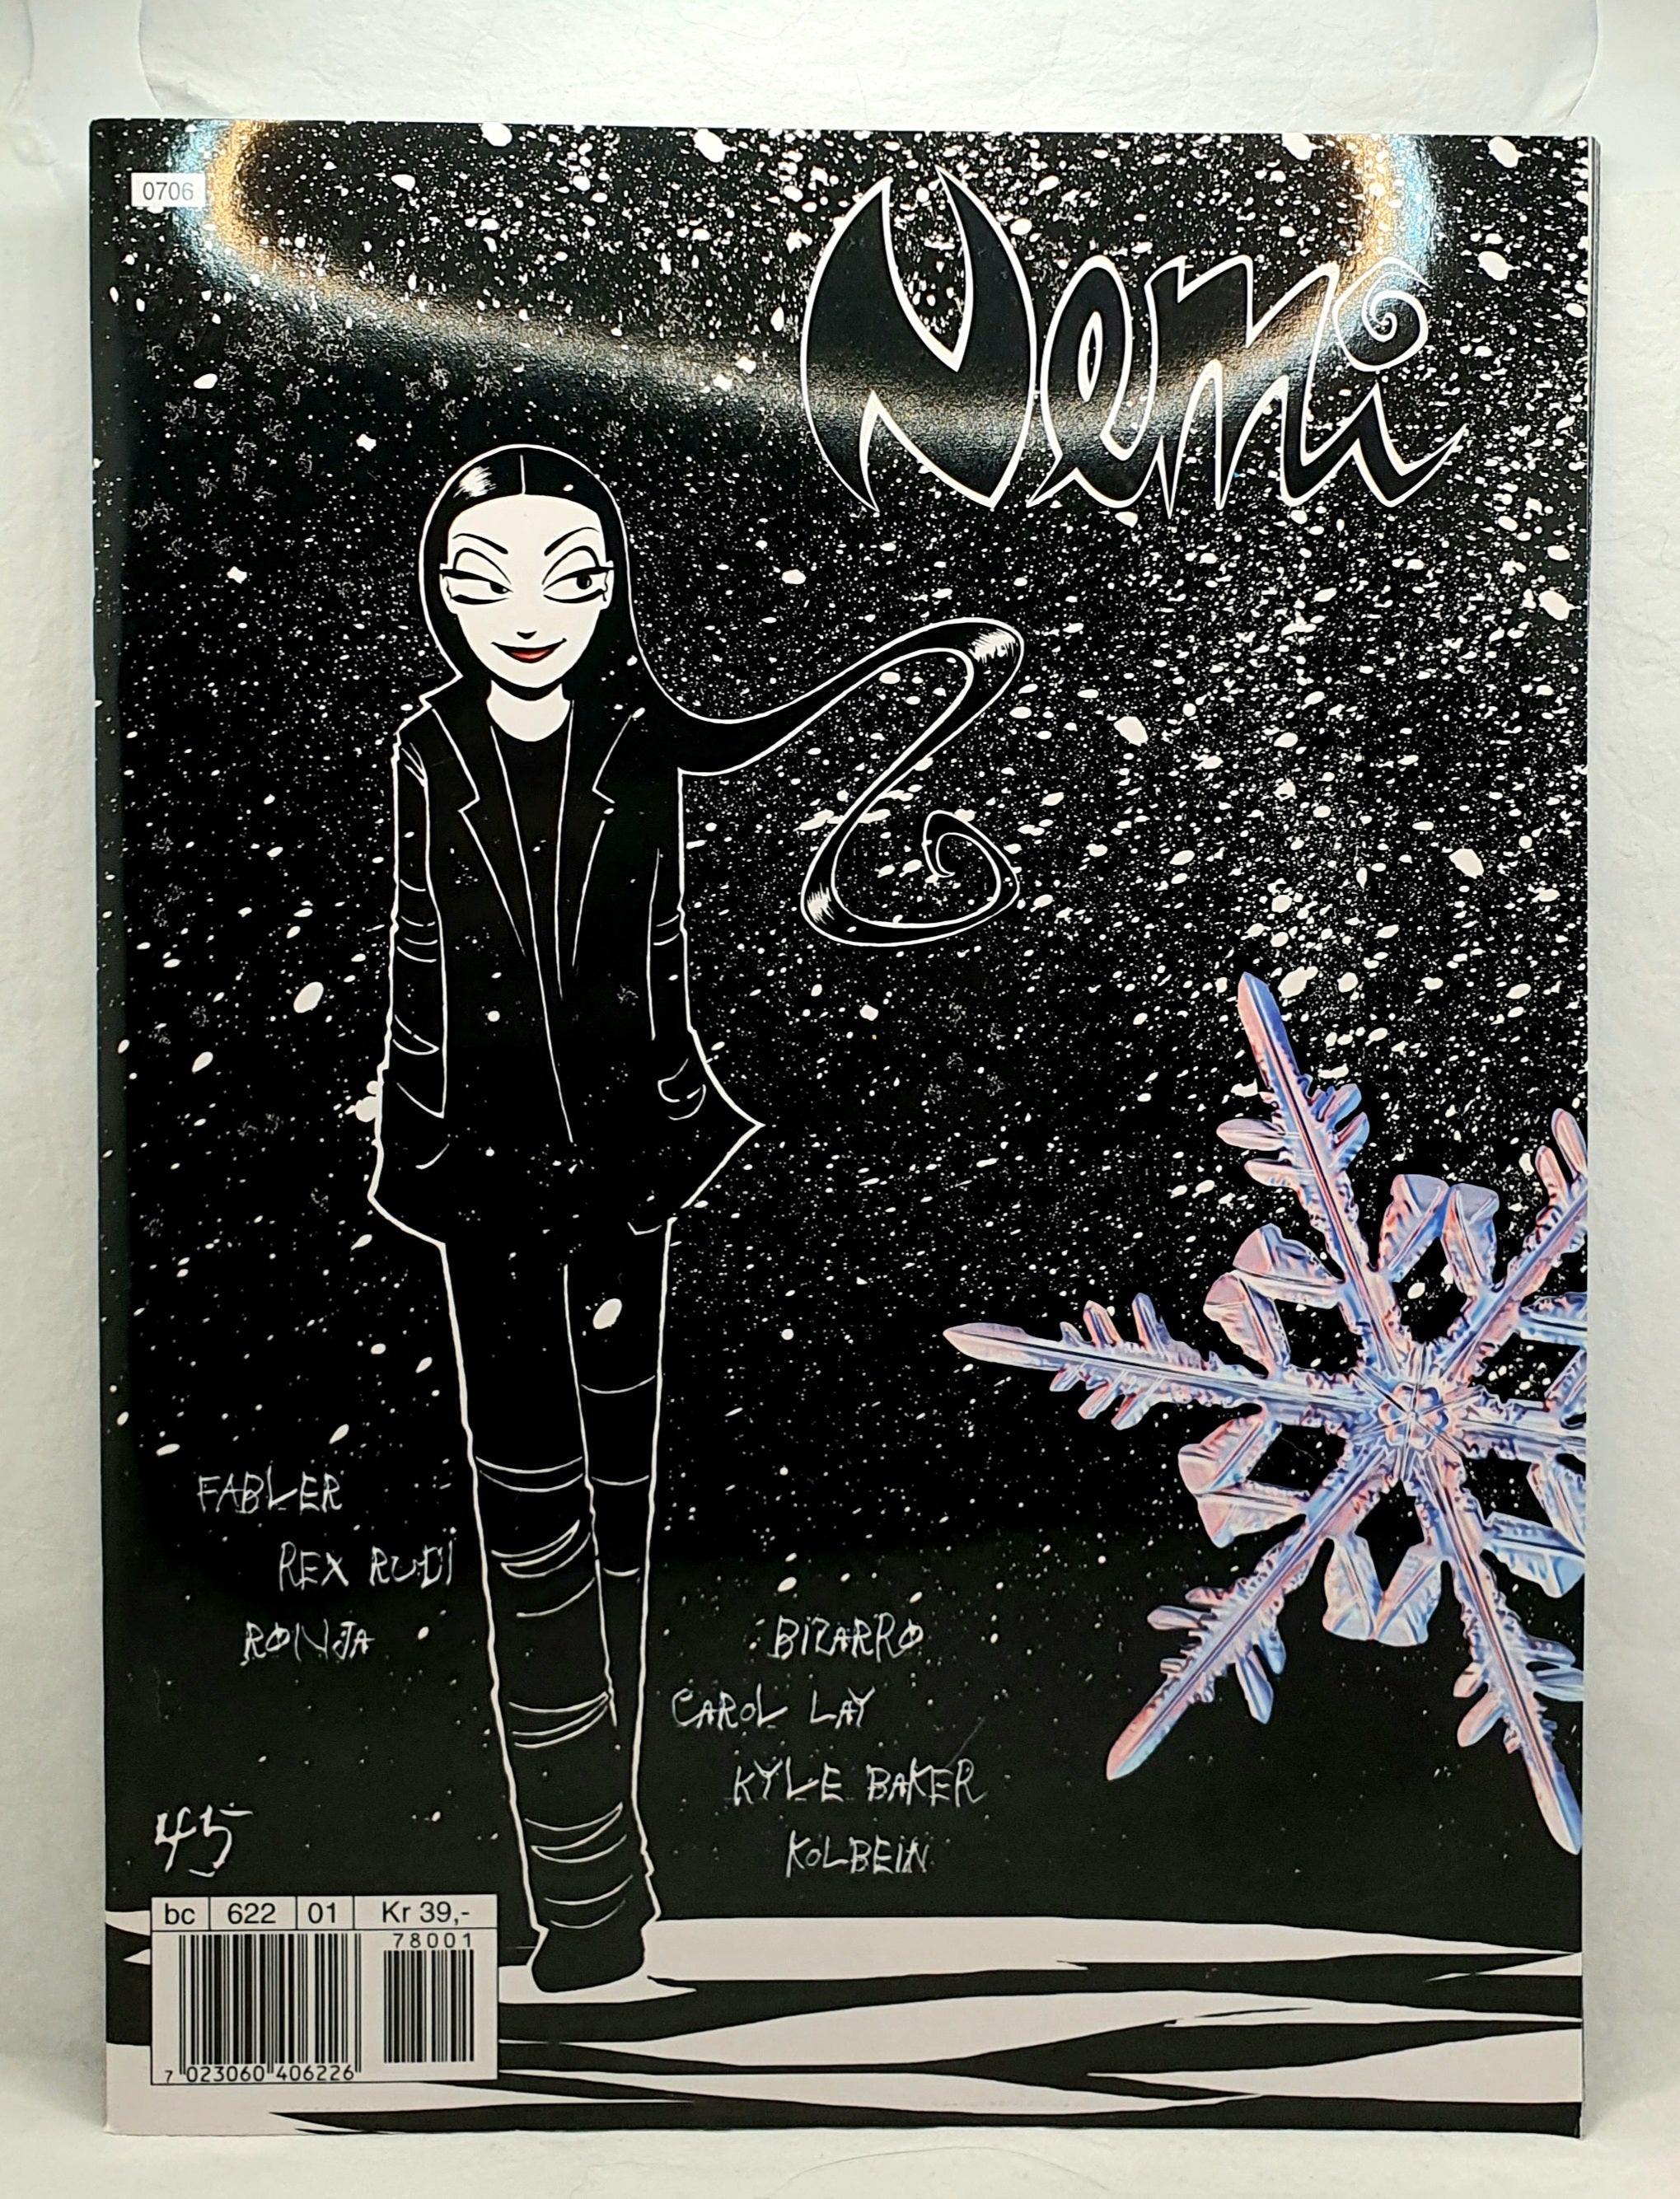 0706
Nemi
FABLER
REX RUDI
RONJA
BIZARRO
CAROL LAY
KYLE BAKER
KOLBEIN
45
bc 622 01 Kr 39,-
78001
7 023060 406226